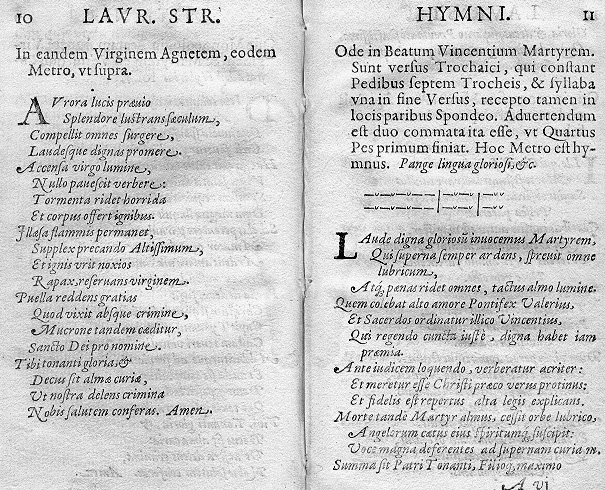 10 LAVR. STR.
In eandem Virginem Agnetem, eodem
Metro, vt supra.
AVrora lucis præuio
Splendore lustrans sæculum,
Compellit omnes surgere,
Laudesque dignas promere.
Accensa virgo lumine,
Nullo pauescit verbere:
Tormenta ridet horrida
Et corpus offert ignibus.
Illæsa flammis permanet,
Supplex precando Altissimum,
Et ignis vrit noxios
Rapax, reseruans virginem.
Puella reddens gratias
Quod vixit absque crimine,
Mucrone tandem cæditur,
Sancto Dei pro nomine.
Tibi tonanti gloria, &
Decus sit almæ curiæ,
Vt nostra delens crimina
Nobis salutem conferas. Amen.
HYMNI. 11
Ode in Beatum Vincentium Martyrem.
Sunt versus Trochaici, qui constant
Pedibus septem Trocheis, & syllaba
vna in fine Versus, recepto tamen in
locis paribus Spondeo. Aduertendum
est duo commata ita esse, vt Quartus
Pes primum finiat. Hoc Metro est hy-
mnus. Pange lingua gloriosi, &c.
LAude digna gloriosū inuocemus Martyrem,
Qui superna semper ardens, spreuit omne
lubricum,
Atq; pœnas ridet omnes, tactus almo lumine.
Quem colebat alto amore Pontifex Valerius,
Et Sacerdos ordinatur illico Vincentius,
Qui regendo cuncta iustè, digna habet iam
præmia.
Ante iudicem loquendo, verberatur acriter:
Et meretur esse Christi præco verus protinus:
Et fidelis est repertus alta legis explicans.
Morte tandē Martyr almus, cessit orbe lubrico,
Angelorum cœtus eius spiritumq; suscipit:
Voce magna deferentes ad supernam curiam.
Summa sit Patri Tonanti, Filioq; maximo
A vi